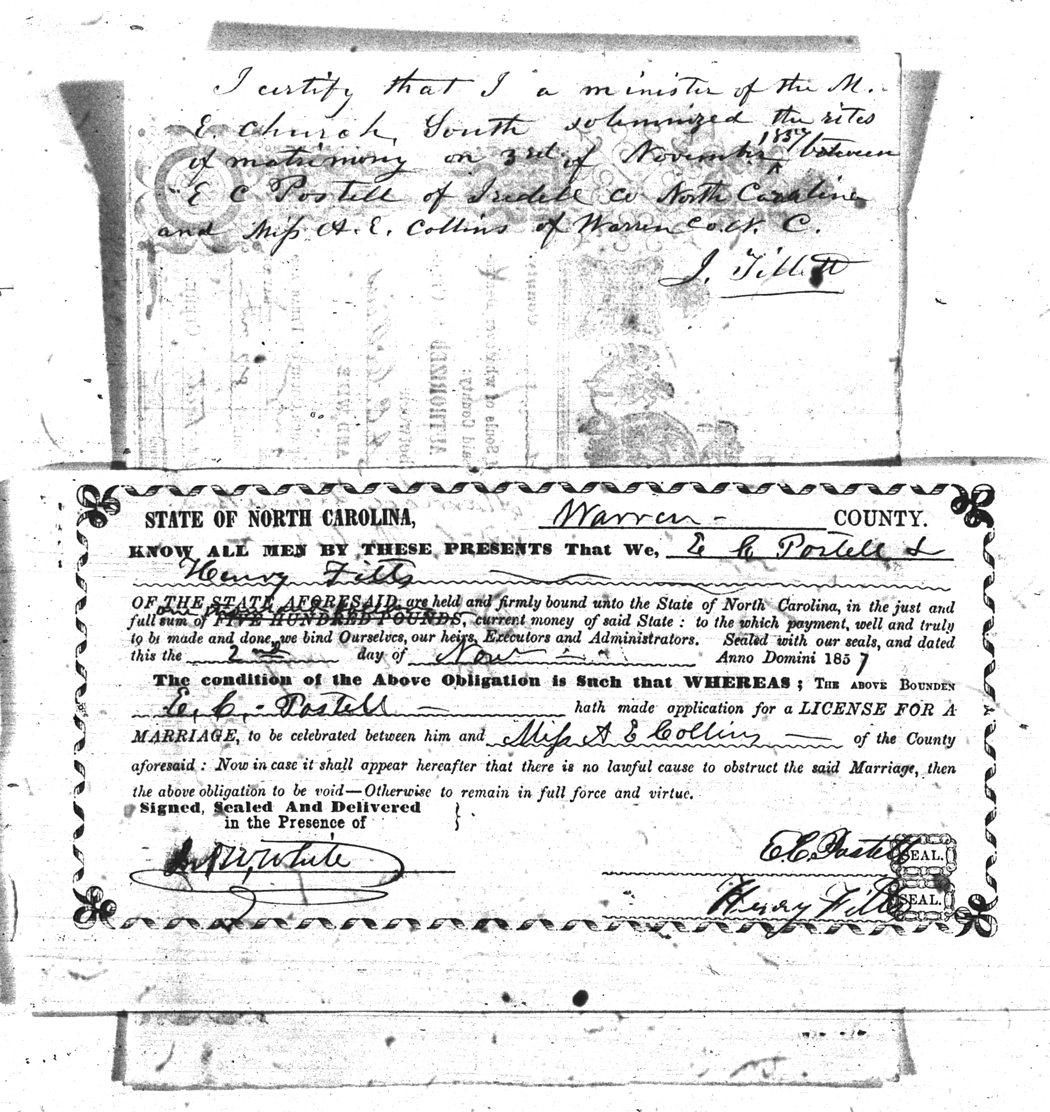 I certify that I a minister of the M.
E. Church, South solemnized the rites
of matrimony on 3rd of November 1857 between
E C Postell of Iredell Co North Carolina
and Miss A. E. Collins of Warren Co. N. C.
J. Tillett
AND WIFE
AUTHORIZED
said County:
STATE OF NORTH CAROLINA, Warren - COUNTY.
KNOW ALL MEN BY THESE PRESENTS That We, E C Postell &
Henry Fitts
OF THE STATE AFORESAID, are held and firmly bound unto the State of North Carolina, in the just and
full sum of FIVE HUNDRED POUNDS, current money of said State : to the which payment, well and truly
to be made and done, we bind Ourselves, our heirs, Executors and Administrators. Sealed with our seals, and dated
this the 2nd day of Nov Anno Domini 1857
The condition of the Above Obligation is Such that WHEREAS ; THE ABOVE BOUNDEN
E. C. - Postell - hath made application for a LICENSE FOR A
MARRIAGE, to be celebrated between him and Miss A E Collins — of the County
aforesaid : Now in case it shall appear hereafter that there is no lawful cause to obstruct the said Marriage, then
the above obligation to be void—Otherwise to remain in full force and virtue.
Signed, Sealed And Delivered
in the Presence of }
W. White
E C Postell SEAL.
Henry Fitts SEAL.